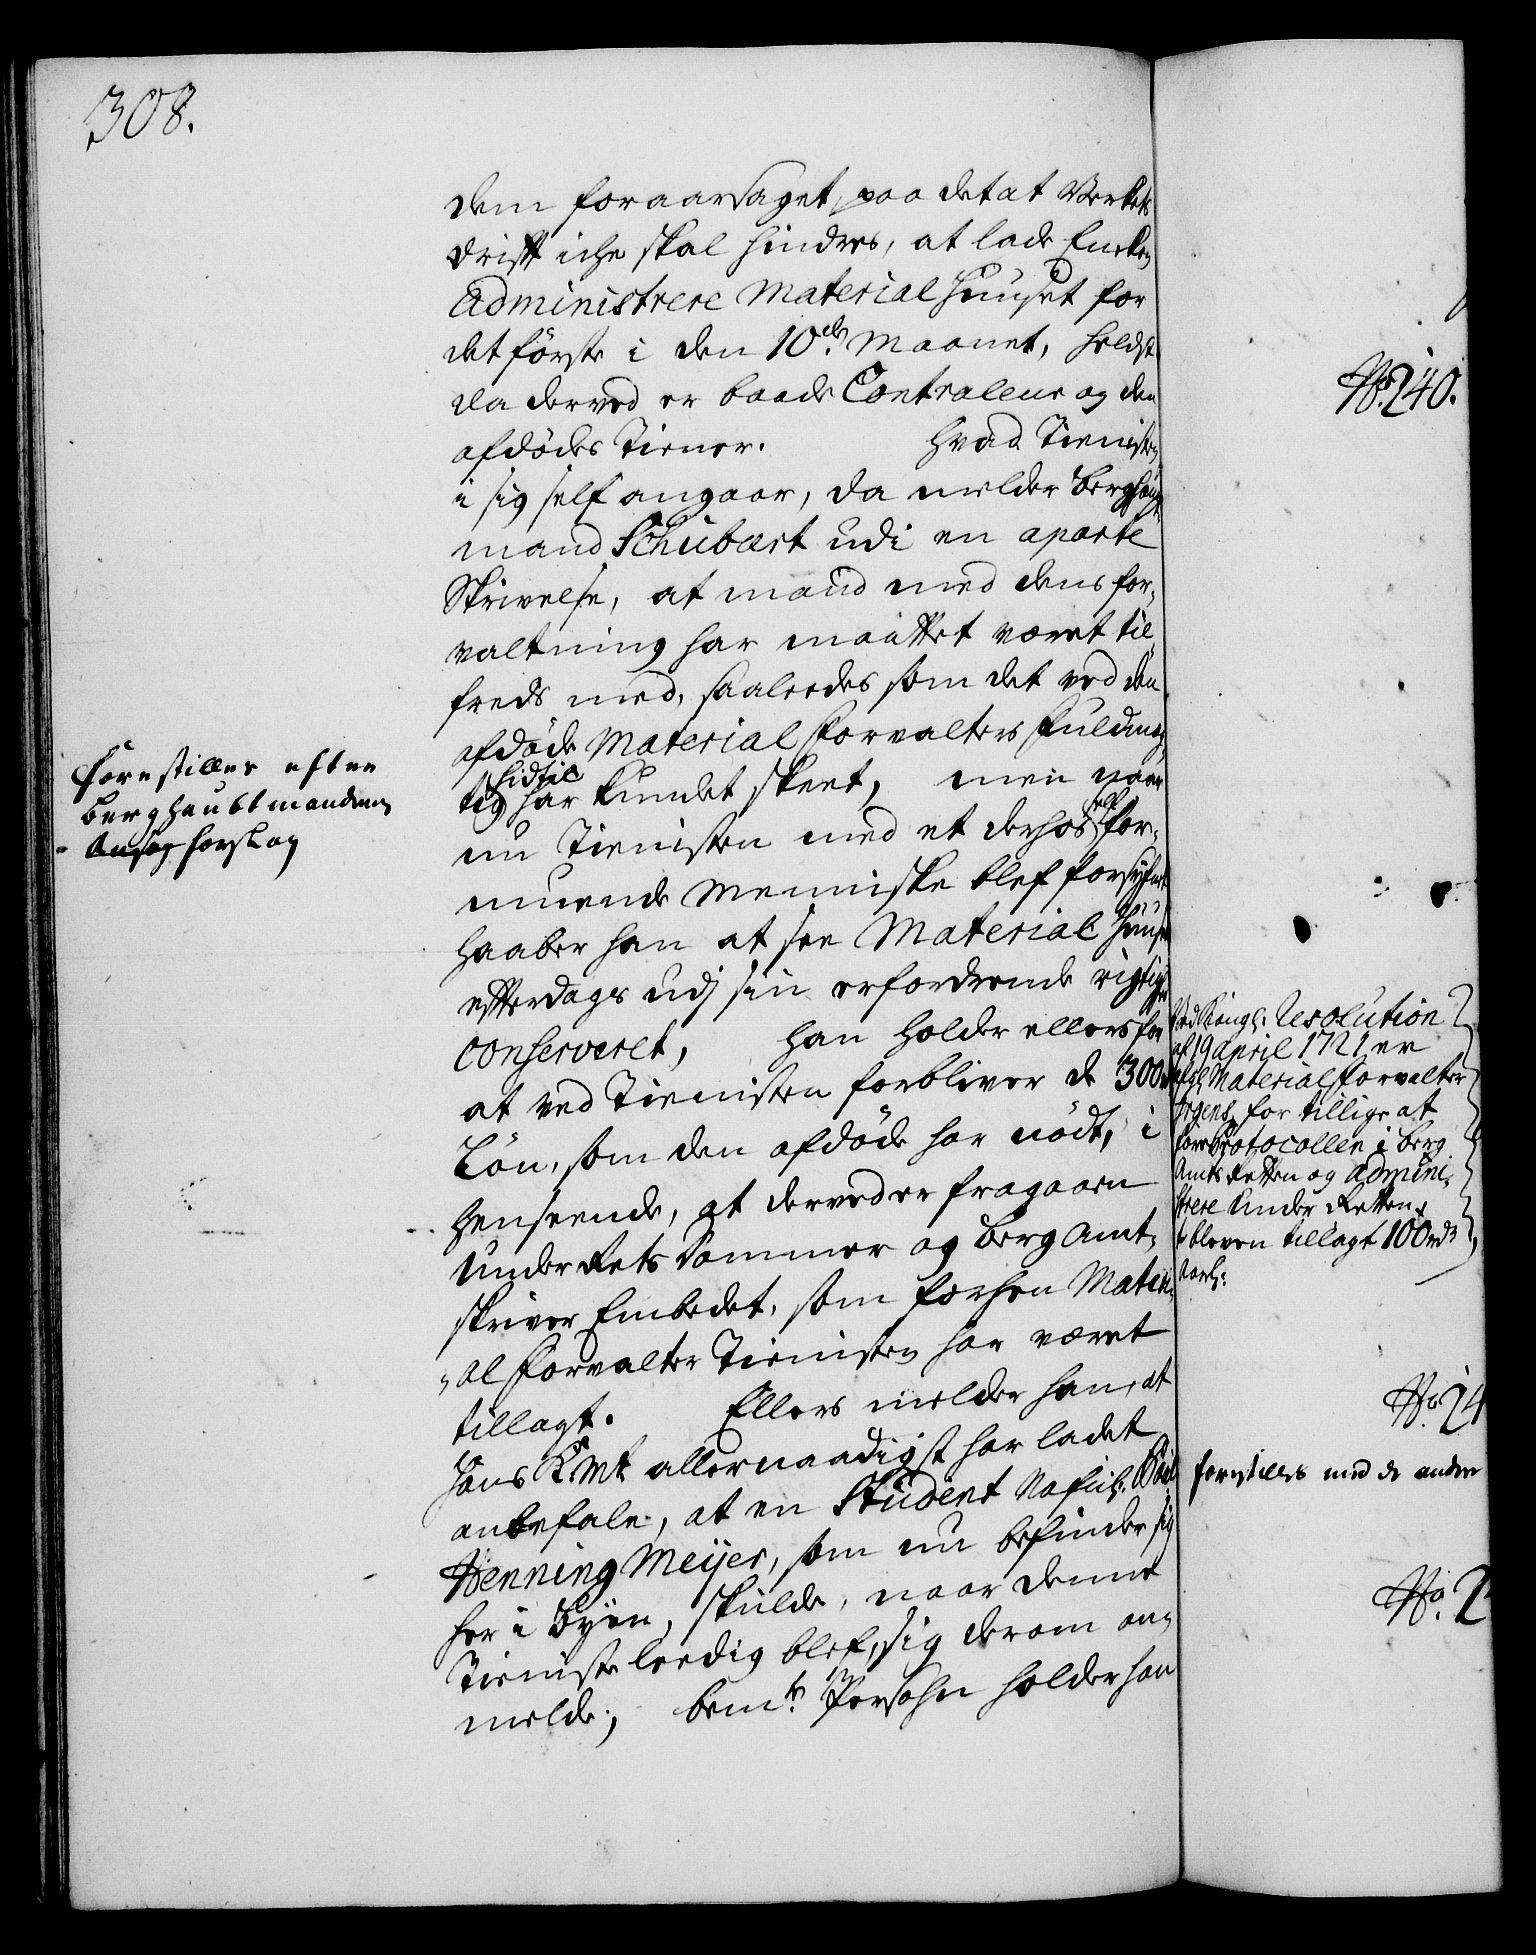 308.
dem foraarsaget, paa det at Verkets
drifft iche skal hindres, at lade Encken
Administrere Material Huuset for
det förste i den 10de Maanet, heldst
da derved er baade Contralleur og den
afdödes Tiener. Hvad Tienisten
i sig self angaar, da melder Berghaupt
mand Schubart udi en aparte
Skrivelse, at mand med dens for,
valtning har maattet været til
freds med, saaleedes som det ved den
afdöde Material Forvalters Fuldmæg,
tig hidtil har kundet skeet, men naar
nu Tienisten med et derhos self for,
muende Menniske blef forsÿnet
haaber han at see Material Huuset
efterdags udj sin erfordrende rigtighed
conserveret, han holder ellers for
at ved Tienisten forbliver de 300 rd
Lön, som den afdöde har nödt, i
henseende, at derved er fragaaen
UnderRets Dommer og Berg Amt,
skriver Embedet, som forhen Materi,
,al Forvalter Tienisten har været
tillagt. Ellers melder han, at
Hans K. Mt allernaadigst har ladet
anbefale, at en Student Nafnl.
Henning Meijer, som nu befinder sig
her i Byen, skulde, naar denne
Tieniste leedig blef, sig derom an,
melde, bemte Persohn holder han
Forestilles efter
Berghaubtmandens
Ansøg forslag
No. 240.
Ved Kongl: Resolution
af 19 April 1721 er
afgl Material Forvalter
for tillige at
före Protocollen i Berg
Amts Retten og Admini,
strere Under Retten
bleven tillagt 100 rdr
Aarl:
No. 24
forestilles med de andre
No. 2